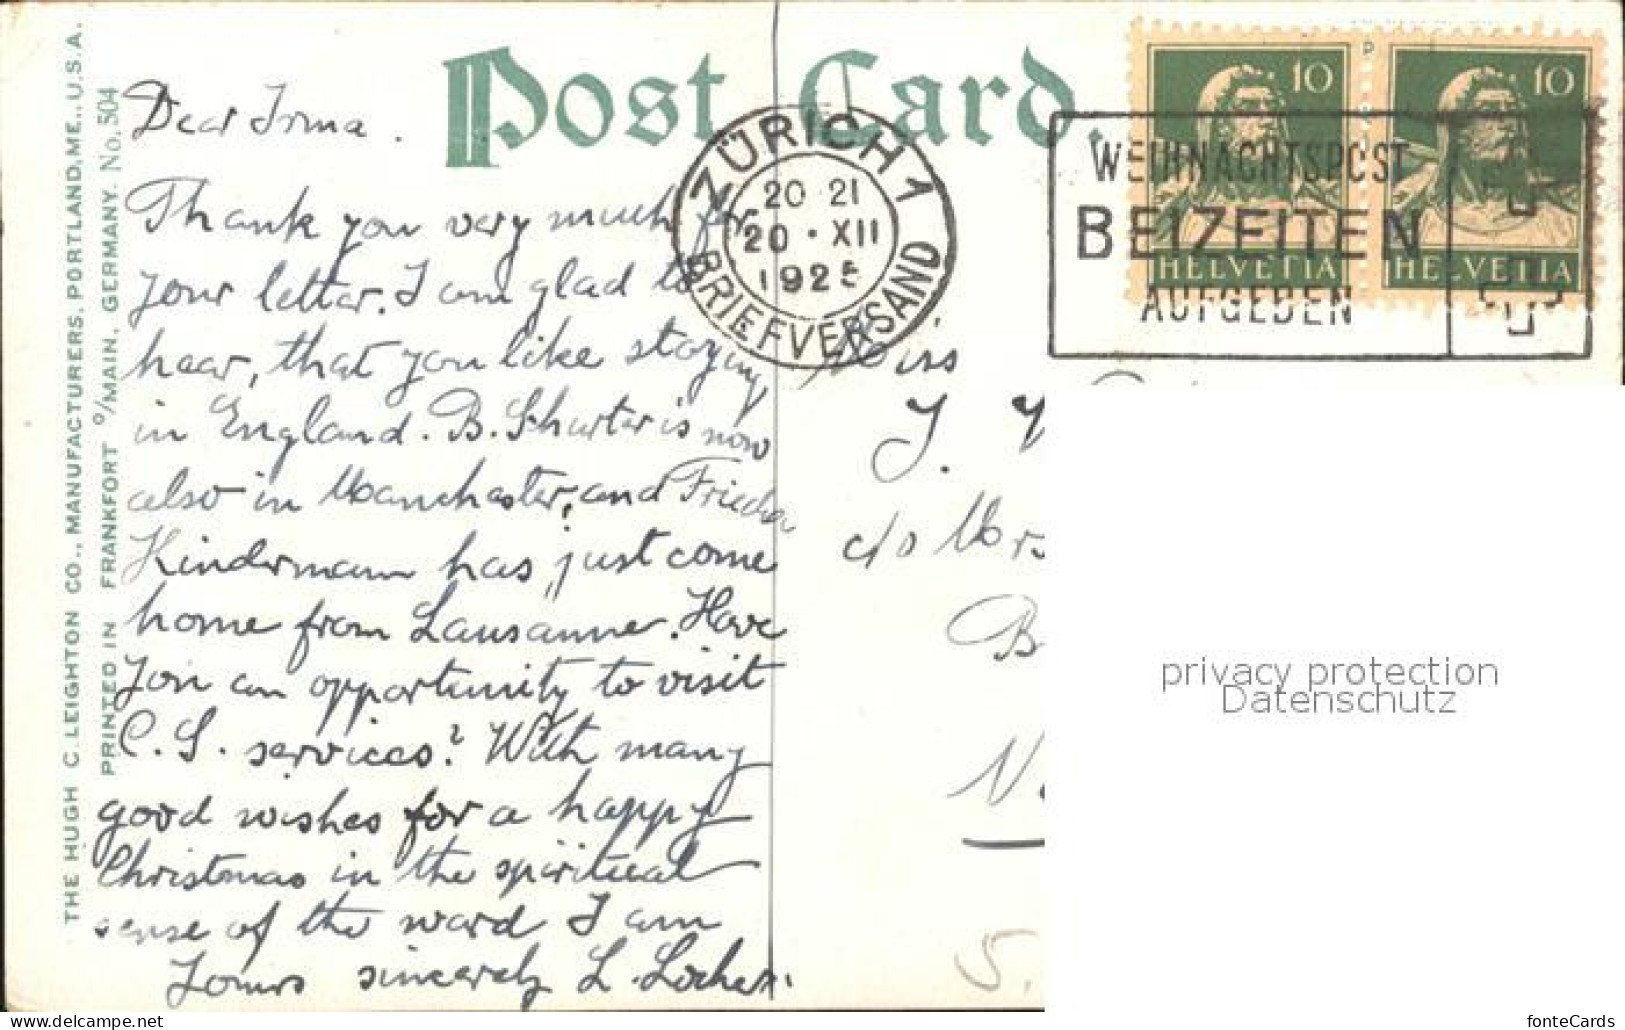 Post Card.
THE HUGH C. LEIGHTON CO., MANUFACTURERS, PORTLAND, ME., U.S.A.
PRINTED IN FRANKFORT º/MAIN, GERMANY. No. 504
Dear Irma.
Thank you very much for
your letter. I am glad to
hear, that you like staying
in England. B. Schurter is now
also in Manchester, and
Kindermann has just come
home from Lausanne. Have
You an opportunity to visit
C. S. services? With many
good wishes for a happy
Christmas in the spiritual
sense of the word I am
Yours sincerely L. Locher.
ZÜRICH 1
20 21
20 • XII
1925
BRIEFVERSAND
WEIHNACHTSPOST
BEIZEITEN
AUFGEBEN
10
HELVETIA
10
HELVETIA
Miss
J.
c/o Mrs
B
N
S.
privacy protection
Datenschutz
delcampe.net
fonteCards